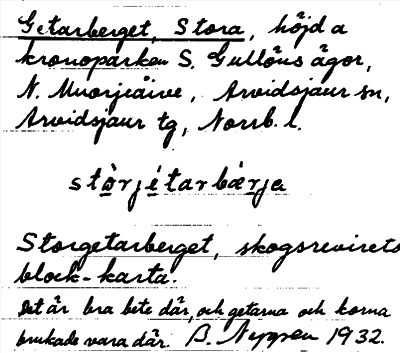 Getarberget, Stora, höjd a
kronoparken S. Gullöns ägor,
N. Muorjeåive, Arvidsjaur sn,
Arvidsjaur tg, Norrb. l.
stòrjétarbærja
Storgetarberget, skogsrevirets
block-karta.
Det är bra bete där, och getarna och korna
brukade vara där. B. Nyppen 1932.